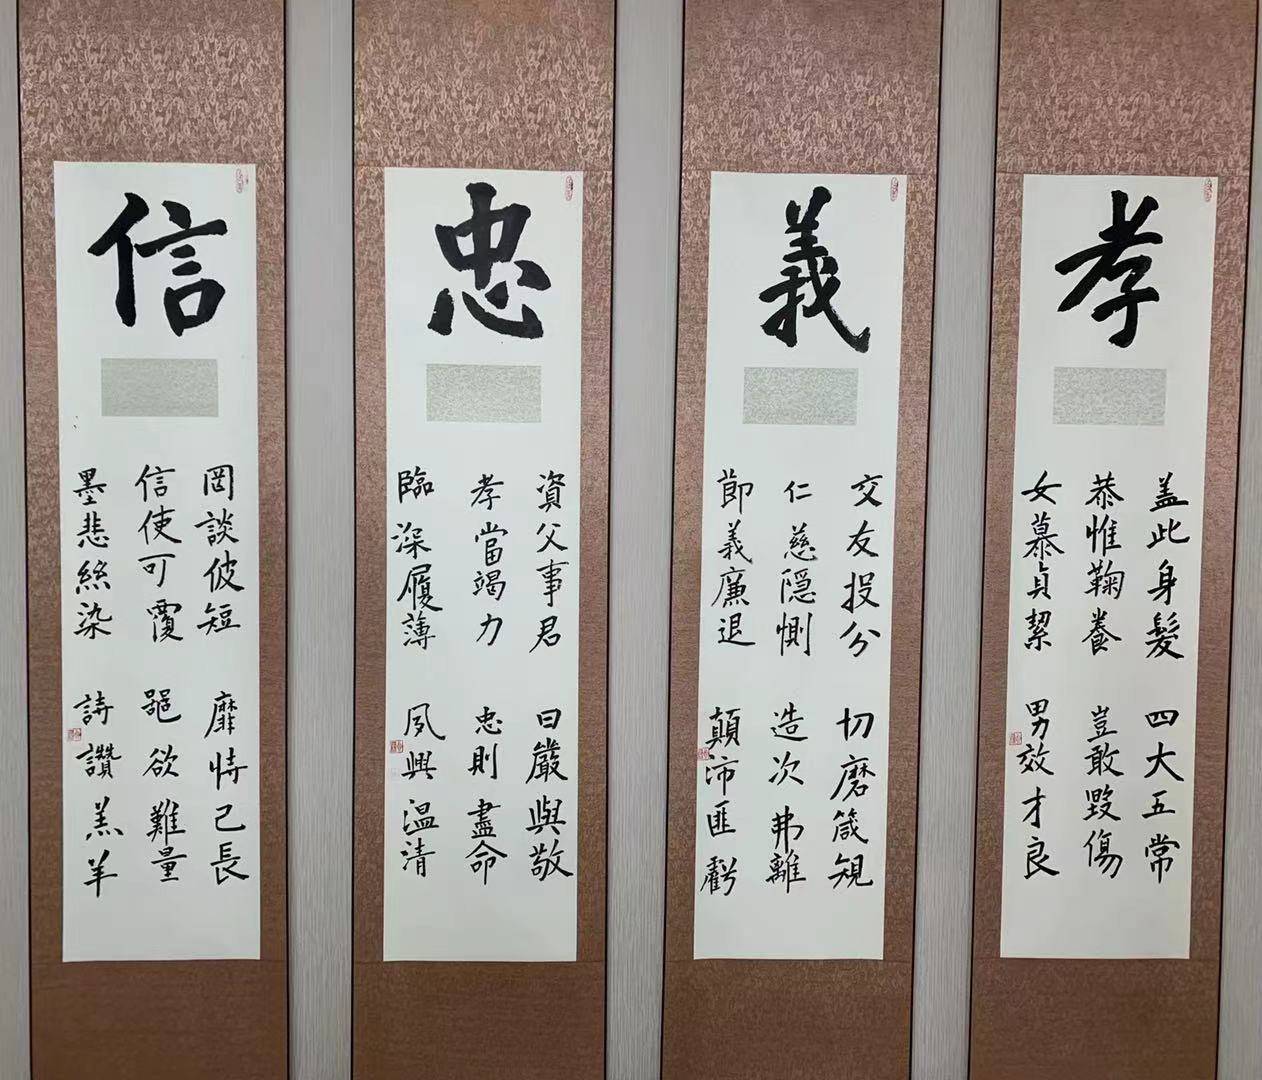 孝
盖此身髮 四大五常
恭惟鞠養 豈敢毀傷
女慕貞絜 男效才良
義
交友投分 切磨箴規
仁慈隠惻 造次弗離
節義廉退 顛沛匪虧
忠
資父事君 曰嚴與敬
孝當竭力 忠則盡命
臨深履薄 夙興温清
信
罔談彼短 靡恃己長
信使可覆 器欲難量
墨悲絲染 詩讚羔羊